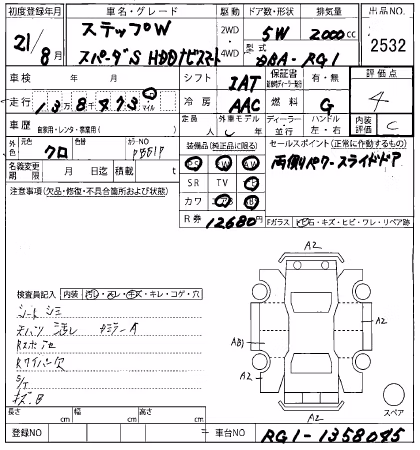 初度登録年月 車名・グレード 駆動 ドア数・形状 排気量 出品NO.
21/8月 ステップW 2WD 5W 2000cc 2532
スパーダS HDDナビスマート 4WD 型式 DBA-RG1
車検 年 月 シフト IAT 保証書 有・無 評価点
走行 13万8473 km マイル 冷房 AAC 燃料 G 4
車歴 自家用・レンタ・事業用( ) 定員 人 外車モデル ディーラー・並行 ハンドル 左・右 内装評価 C
外色 元色 クロ 色替 カラーNO 装備品(純正品に限る) セールスポイント(正常に作動するもの)
名義変更期限 月 日迄 積載 t PS PW 両側パワースライドドア
注意事項(欠品・修復・不具合箇所および状態) SR TV
カワ
R券 12680円 Fガラス 石・キズ・ヒビ・ワレ・リペア跡
A2
検査員記入 内装 キレ・コゲ・穴
シートシミ
A2
A2
Rワイパー欠
S/T
長さ cm 幅 cm 高さ cm
A2
スペア
登録NO 車台NO RG1-1358045